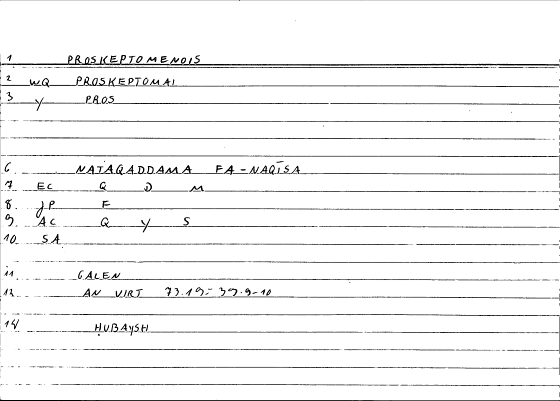 1 PROSKEPTOMENOIS
2 WQ PROSKEPTOMAI
3 Y PROS
6 NATAQADDAMA FA-NAQĪSA
7 EC Q D M
8. JP F
9. AC Q Y S
10. SA
11 GALEN
12 AN VIRT 73.19 = 39.9-10
14 ḤUBAYSH